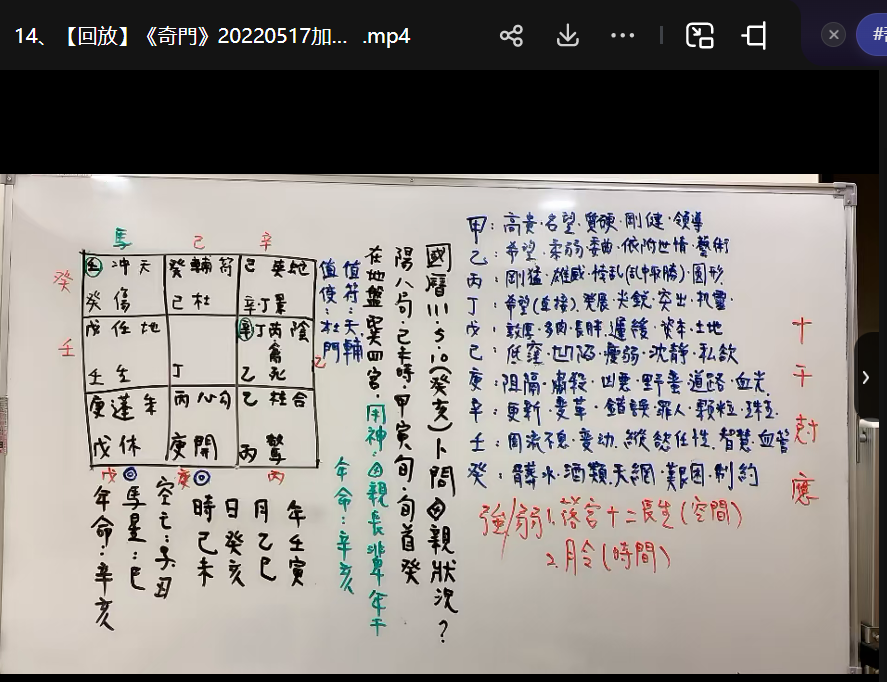 14、【回放】《奇門》20220517加... .mp4
#
十干尅應
甲：高貴·名望·實硬·剛健·領導
乙：希望·柔弱·委曲·依附世情·藝術
丙：剛猛·雄威·悖亂(亂中取勝)·圓形
丁：希望(連接)·發展·尖銳·突出·机靈·
戊：敦厚·多肉·長胖·遲緩·資本·土地
己：低窪·凹陷·瘦弱·沈靜·私欲
庚：阻隔·肅殺·凶惡·野蠻·道路·血光
辛：更新·變革·錯誤·罪人·顆粒·珠玉
壬：周流不息·変动·縱慾任性·智慧·血管
癸：髒水·酒類·天網·艱困·制約
強/弱 1.落宮十二長生(空間)
2.月令(時間)
國曆111.5.10(癸亥)卜問母親狀況?
陽八局·己未時·甲寅旬·旬首癸
在地盤巽四宮·用神:母親長輩年干
值符:天輔
值使:杜門
年命:辛亥
馬 己 辛
癸 壬 冲 天
癸 傷
癸 輔 符
己 杜
己 英 蛇
辛 丁 景
壬 戊 任 地
壬 生
丁
辛 丁 丙 陰
禽
乙 死
乙
庚 蓬 年
戊 休
丙 心 勾
庚 開
乙 柱 合
丙 驚
戊 庚 丙
年壬寅
月乙巳
日癸亥
時己未
空亡:子丑
馬星:巳
年命:辛亥